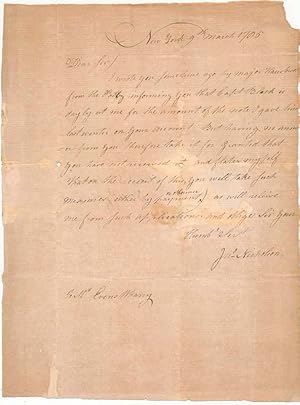 New York 9th March 1785
Dear Sir/
I wrote you sometime ago by major
from the informing you that Capt. Black is
at me for the amount of the note I gave him
last winter on your account. But having no answer
from you therefore take it for granted that
you have not received it and flatter myself
that on the receit of this, you will take such
measures either by payment or otherwise as will relieve
me from such applications and oblige Sir your
Humbl Servt
Jno. Nicholson
To Mr. Evens Wharry